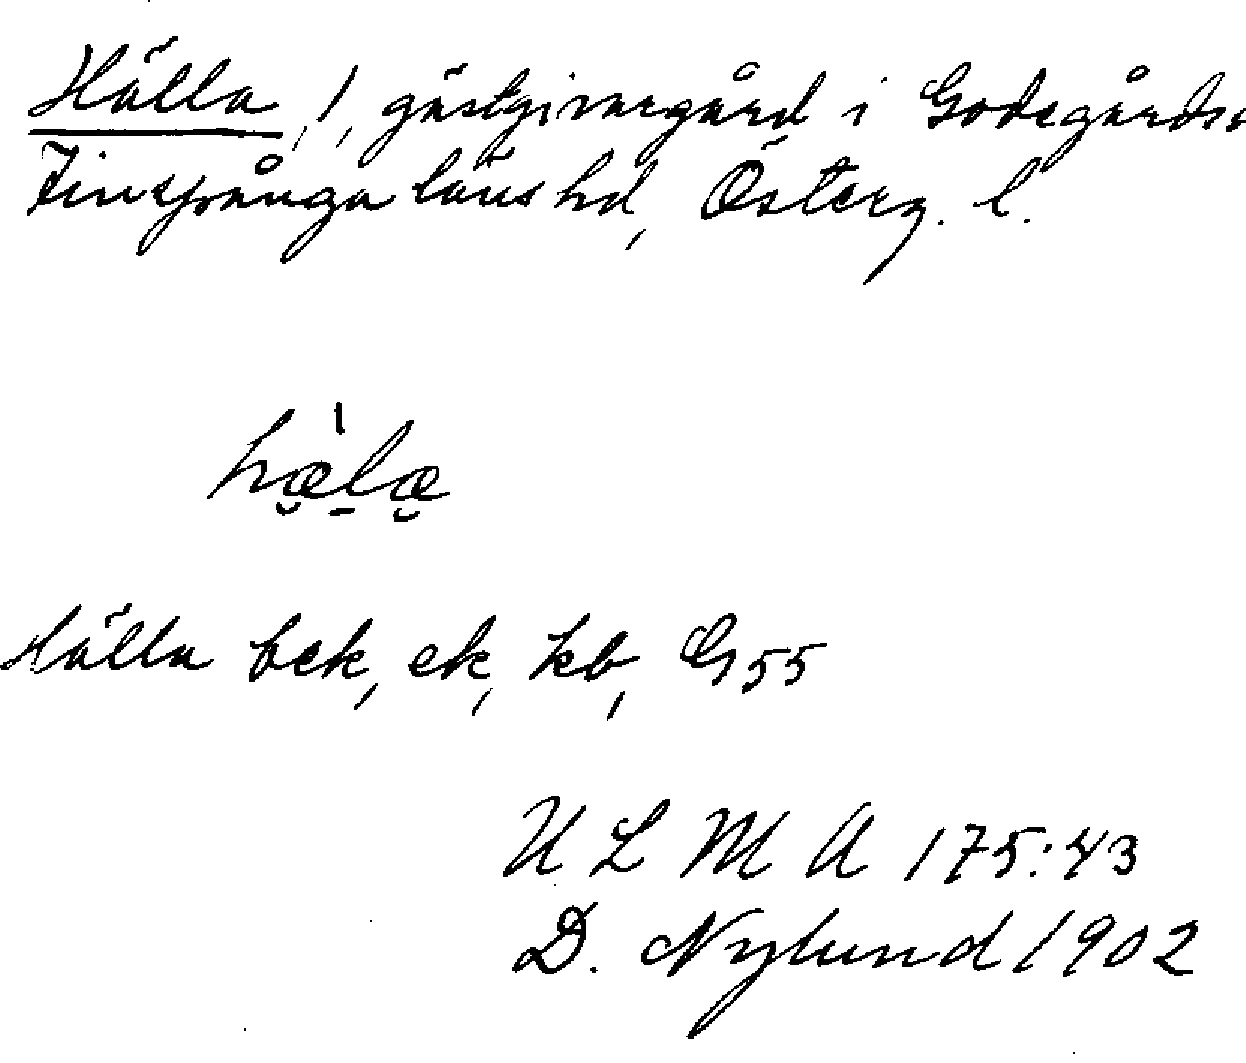 Hälla, 1, gästgivaregård i Godegårds
Finspånga läns hd, Österg. l.
hæ̀læ
Hälla bek, ek, kb, G55
U L M A 175:43
D. Nylund 1902